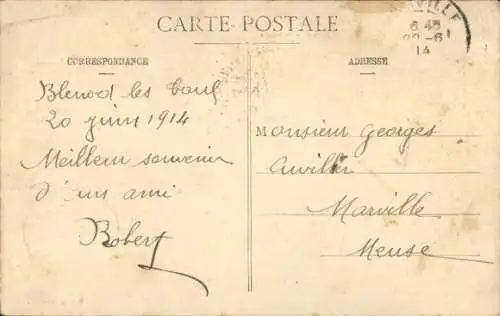 CARTE POSTALE
CORRESPONDANCE
ADRESSE
VILLE
6 45
22-6
14
Blenod les Toul
20 juin 1914
Meilleur souvenir
d'un ami
Robert
Monsieur Georges
Cuvillier
Marville
Meuse